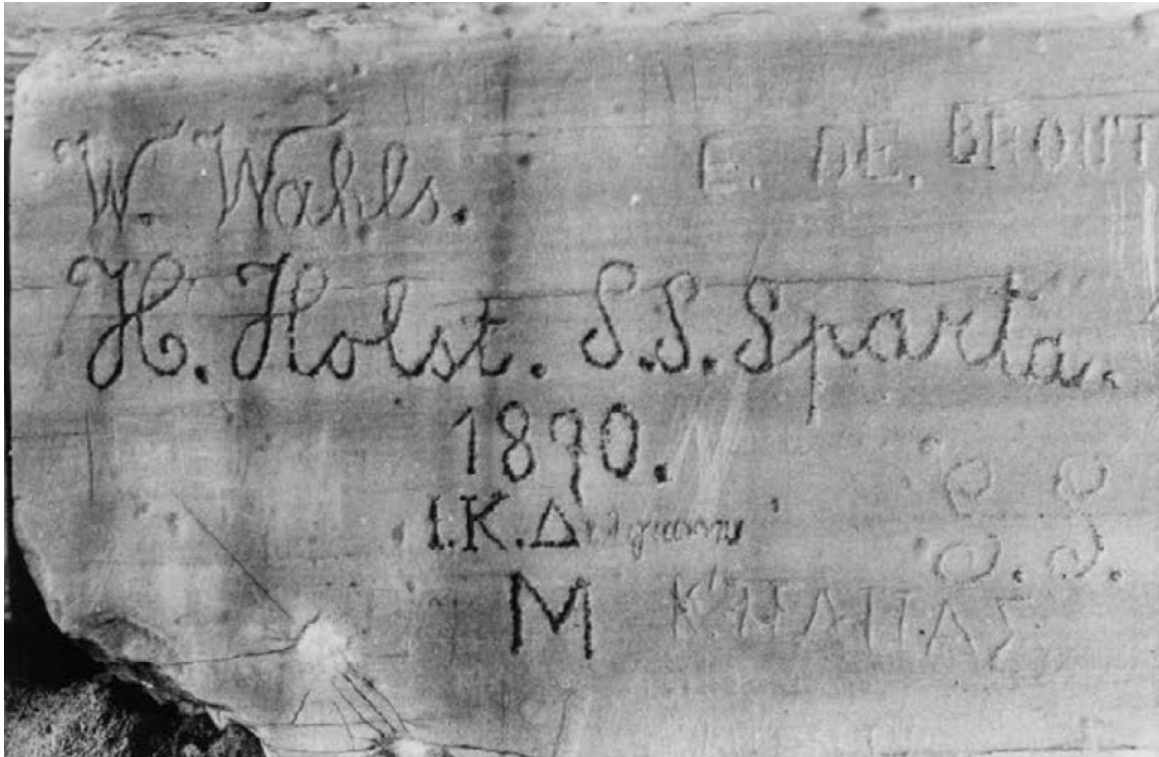 W. Wahls.
E. DE. BROUT
H. Holst. S.S. Sparta.
1890.
Ι.Κ.Δ
S. S.
Μ